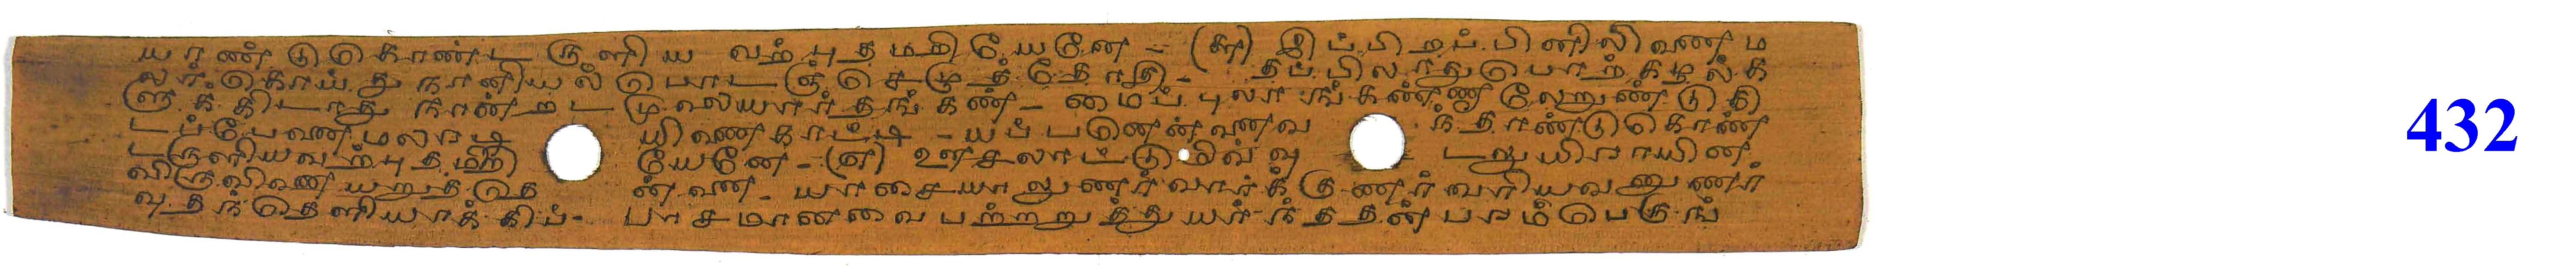 யாண்டுகொண்டருளிய வற்புதமறியேயனே - (௯) இப்பிறப்பினிலிணைம
லர்கொய்துநானியல்பொடஞ்செழுத்தோதி - தப்பிலாதுபொற்கழல்க
ளுக்கிடாதுநான்றடமுலையார்தங்கண் - மைப்புலாங்கண்ணாலேறுண்டுகி
டப்பேனைமலரடி யிணைகாட்டி - யப்பனென்னைவ ந்தாண்டுகொண்
டருளியவற்புதமறி யேனே - (௰) ஊசலாட்டுமிவ்வு டலுயிராயின
விருவினையறுத்தெ ன்னை - யாசையாலுணர்வார்க்குணர்வரியவனுணர்
வுதந்தெளியாக்கிப் - பாசமானவைபற்றறுத்துயர்ந்ததன்பரம்பெருங்
432